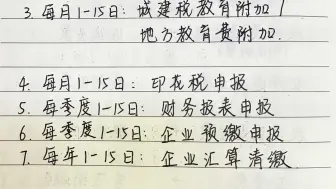 3. 每月1-15日：城建税教育附加/
地方教育费附加.
4. 每月1-15日：印花税申报
5. 每季度1-15日：财务报表申报
6. 每季度1-15日：企业预缴申报
7. 每年1-15日：企业汇算清缴